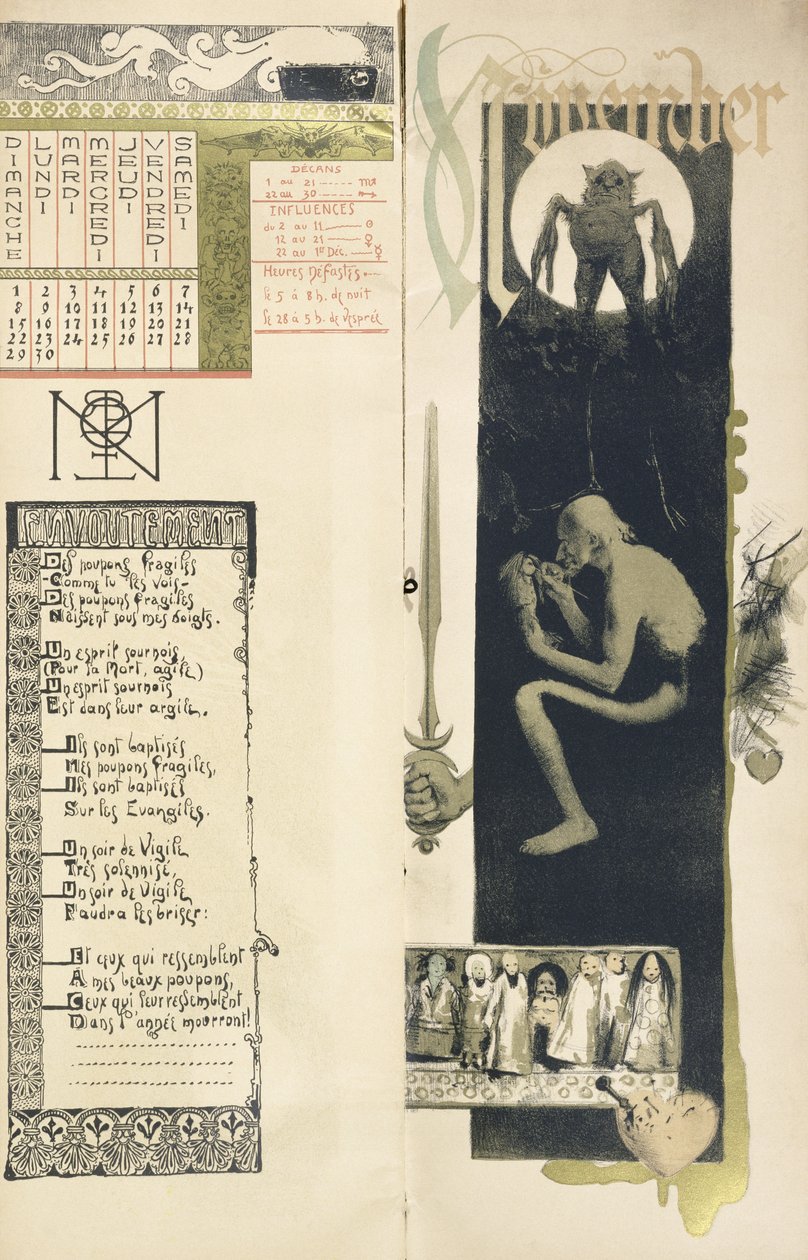 November
DIMANCHE LUNDI MARDI MERCREDI JEUDI VENDREDI SAMEDI
1 2 3 4 5 6 7
8 9 10 11 12 13 14
15 16 17 18 19 20 21
22 23 24 25 26 27 28
29 30
DÉCANS
1 au 21 ------ ♏
22 au 30 ------ ♐
INFLUENCES
du 2 au 11 ☉
12 au 21 ♀
22 au 1er Déc. ☿
Heures Néfastes
le 5 á 8 h. de nuit
le 28 á 5 h. de Vesprée
ENVOUTEMENT
Des poupons fragiles
-Comme tu les vois-
Des poupons fragiles
Naissent sous mes doigts.
Un esprit sournois,
(Pour la Mort, agile)
Un esprit sournois
Est dans leur argile.
Ils sont baptisés
Mes poupons fragiles,
Ils sont baptisés
Sur les Evangiles.
Un soir de Vigile
Très solennisé,
Un soir de Vigile
Faudra les briser:
Et ceux qui ressemblent
À mes beaux poupons,
Ceux qui leur ressemblent
Dans l'année mourront!